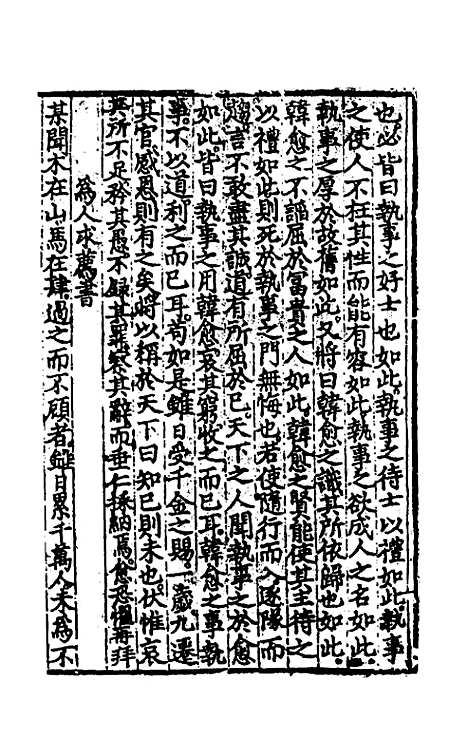 也必皆曰執事之好士也如此執事之待士以禮如此執事
之使人不枉其性而能有容如此執事之欲成人之名如此
執事之厚於故舊如此又將曰韓愈之識其所依歸也如此
韓愈之不諂屈於富貴之人如此韓愈之賢能使其主待之
以禮如此則死於執事之門無悔也若使隨行而入逐隊而
趨言不敢盡其誠道有所屈於已天下之人聞執事之於愈
如此皆曰執事之用韓愈哀其窮收之而已耳韓愈之事執
事不以道利之而已耳苟如是雖日受千金之賜一歲九遷
其官感恩則有之矣將以稱於天下曰知已則未也伏惟哀
其所不足矜其愚不録其罪察其辭而垂仁採納焉愈恐懼再拜
為人求薦書
某聞木在山馬在肆過之而不顧者雖日累千萬人未為不